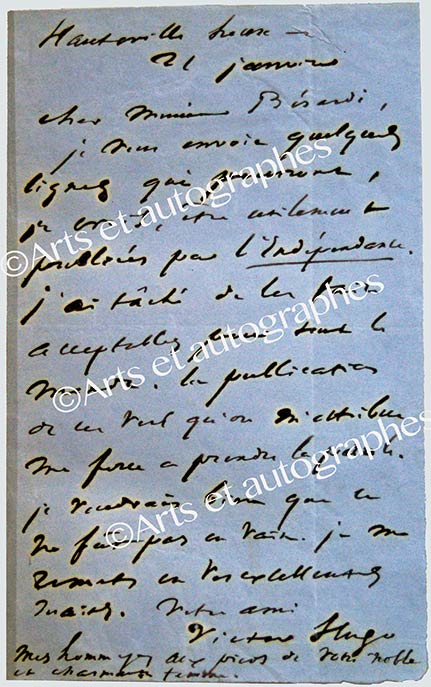 Hauteville house –
21 janvier
cher Monsieur Bérardi,
je vous envoie quelques
lignes qui pourront,
je crois, être utilement
publiées par l'Indépendance.
j'ai tâché de les faire
acceptables pour tout le
monde. la publication
de un vers qu'on m'attribue
me force à prendre la parole.
je voudrais bien que ce
ne fût pas en vain. je me
remets en vos excellentes
mains. Votre ami
Victor Hugo
mes hommages aux pieds de votre noble
et charmante femme.
©Arts et autographes
©Arts et autographes
©Arts et autographes